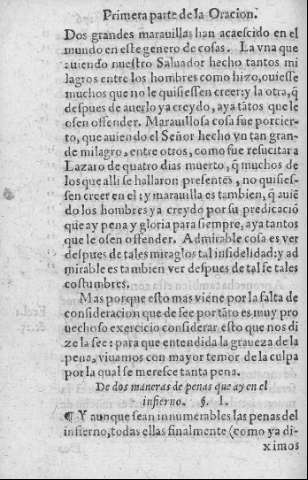 Primera parte de la Oracion.
Dos grandes marauillas han acaescido en el
mundo en este genero de cosas. La vna que
auiendo nuestro Saluador hecho tantos mi
lagros entre los hombres como hizo, ouiesse
muchos que no le quisiessen creer: y la otra, q̃
despues de auerlo ya creydo, aya tãtos que le
osen offender. Marauillosa cosa fue porcier-
to, que auiendo el Señor hecho vn tan gran-
de milagro, entre otros, como fue resucitar a
Lazaro de quatro dias muerto, q̃ muchos de
los que alli se hallaron presentes, no quisies-
sen creer en el: y marauilla es tambien, q̃ auiẽ
do los hombres ya creydo por su predicaciõ
que ay pena y gloria para siempre, aya tantos
que le osen offender. Admirable cosa es ver
despues de tales miraglos tal infidelidad: y ad
mirable es tambien ver despues de tal fe tales
costumbres.
Mas porque esto mas viene por la falta de
consideracion que de fee por tãto es muy pro
uechoso exercicio considerar esto que nos di-
ze la fee: para que entendida la graueza de la
pena, viuamos con mayor temor de la culpa
por la qual se meresce tanta pena.
De dos maneras de penas que ay en el
infierno. §. 1.
¶ Y aunque sean innumerables las penas del
infierno, todas ellas finalmente (como ya di-
ximos